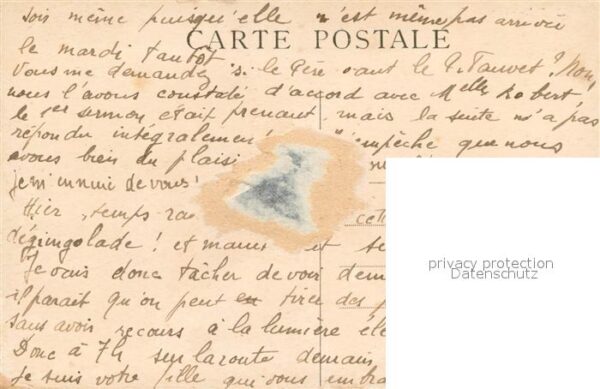 sois même puisqu'elle n'est même pas arrivée
le mardi tantôt
CARTE POSTALE
Vous me demandez si le Père vaut le P. Tauvet? Non!
nous l'avons constaté d'accord avec Melle Robert,
le 1er sermon était prenant mais la suite n'a pas
répondu intégralement! N'empêche que nous
avons bien du plaisi
je m'ennuie de vous!
Hier, temps cette
dégringolade! et et
Je vais donc tâcher de voir dem
il paraît qu'on peut en tirer des
sans avoir recours à la lumière éle
Donc à 7h sur la route demain
Je suis votre fille qui vous embra
privacy protection
Datenschutz